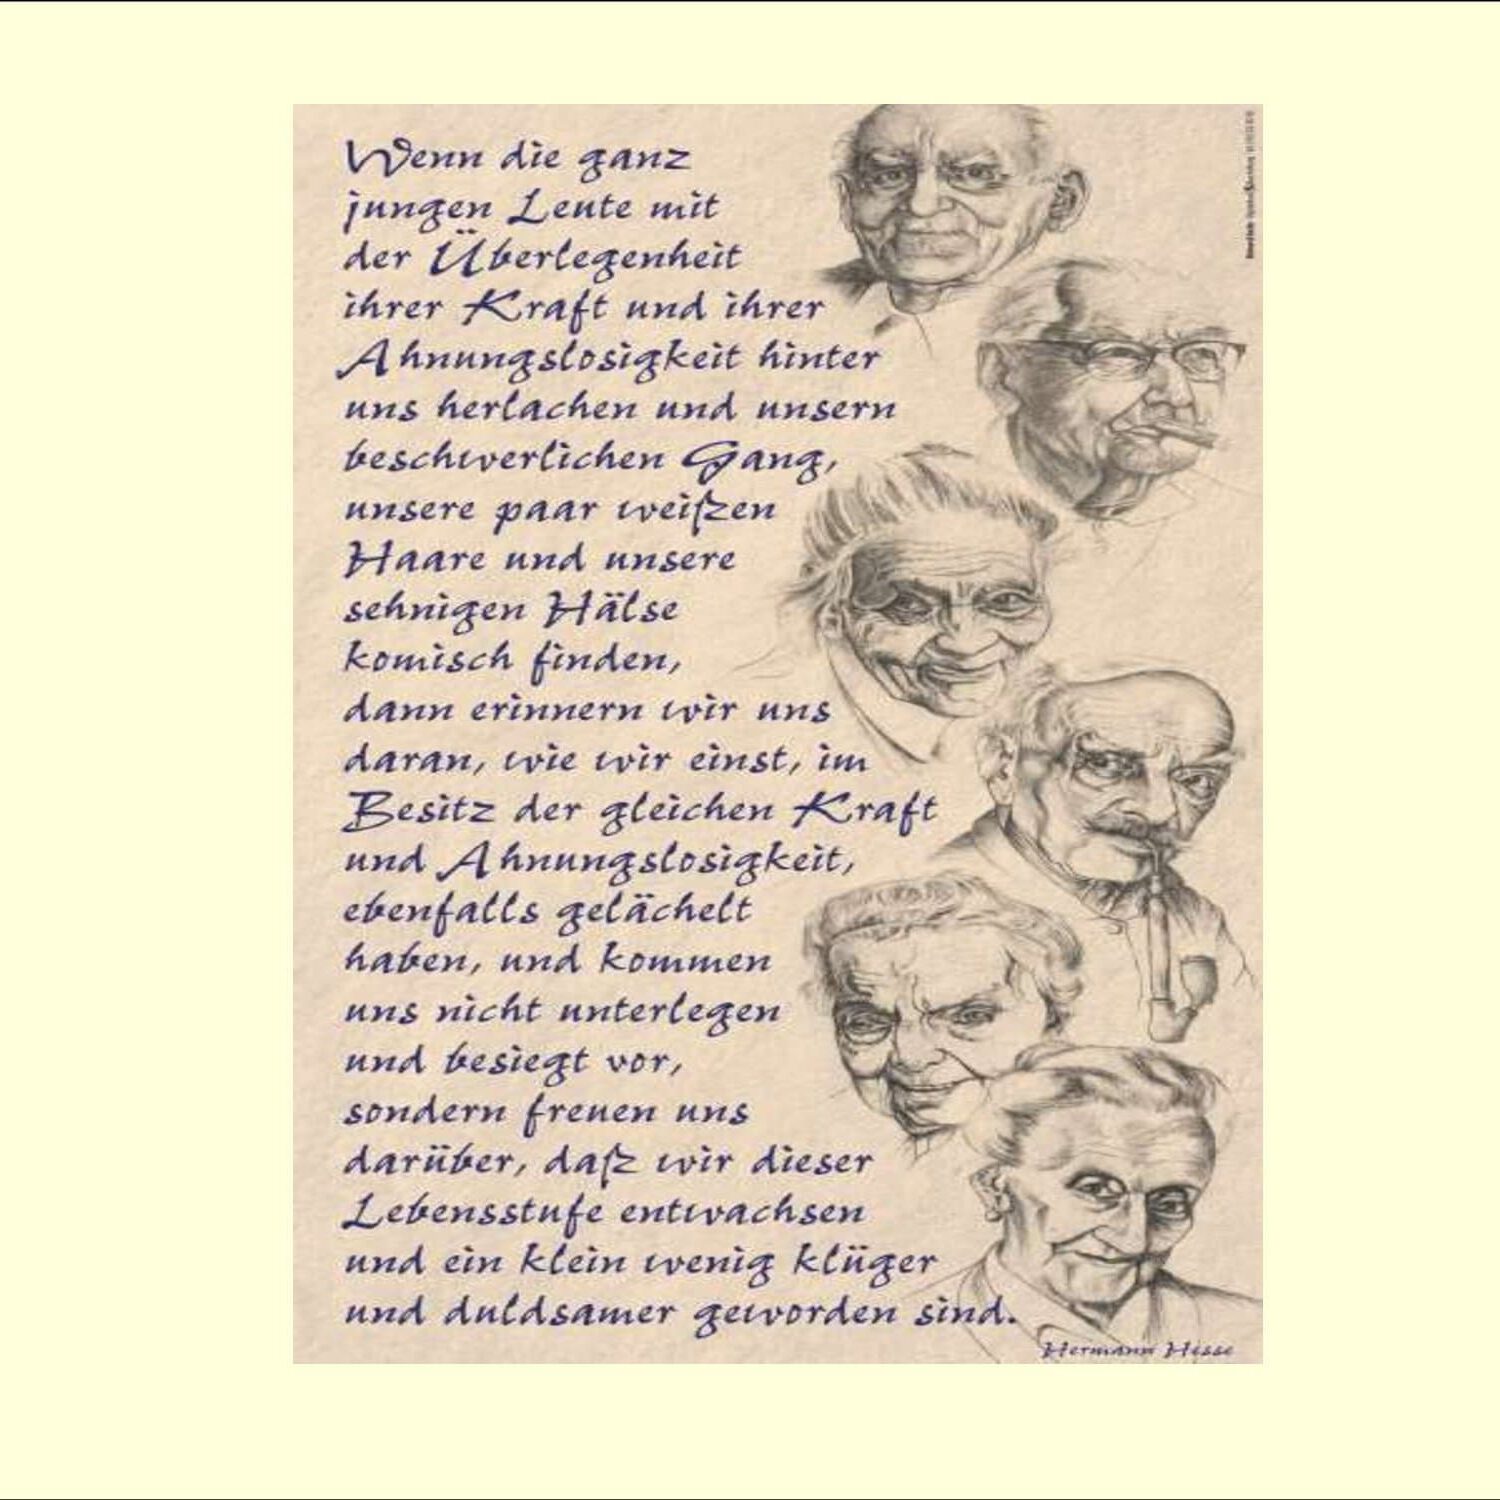 Wenn die ganz
jungen Leute mit
der Überlegenheit
ihrer Kraft und ihrer
Ahnungslosigkeit hinter
uns herlachen und unsern
beschwerlichen Gang,
unsere paar weißen
Haare und unsere
sehnigen Hälse
komisch finden,
dann erinnern wir uns
daran, wie wir einst, im
Besitz der gleichen Kraft
und Ahnungslosigkeit,
ebenfalls gelächelt
haben, und kommen
uns nicht unterlegen
und besiegt vor,
sondern freuen uns
darüber, daß wir dieser
Lebensstufe entwachsen
und ein klein wenig klüger
und duldsamer geworden sind.
Hermann Hesse